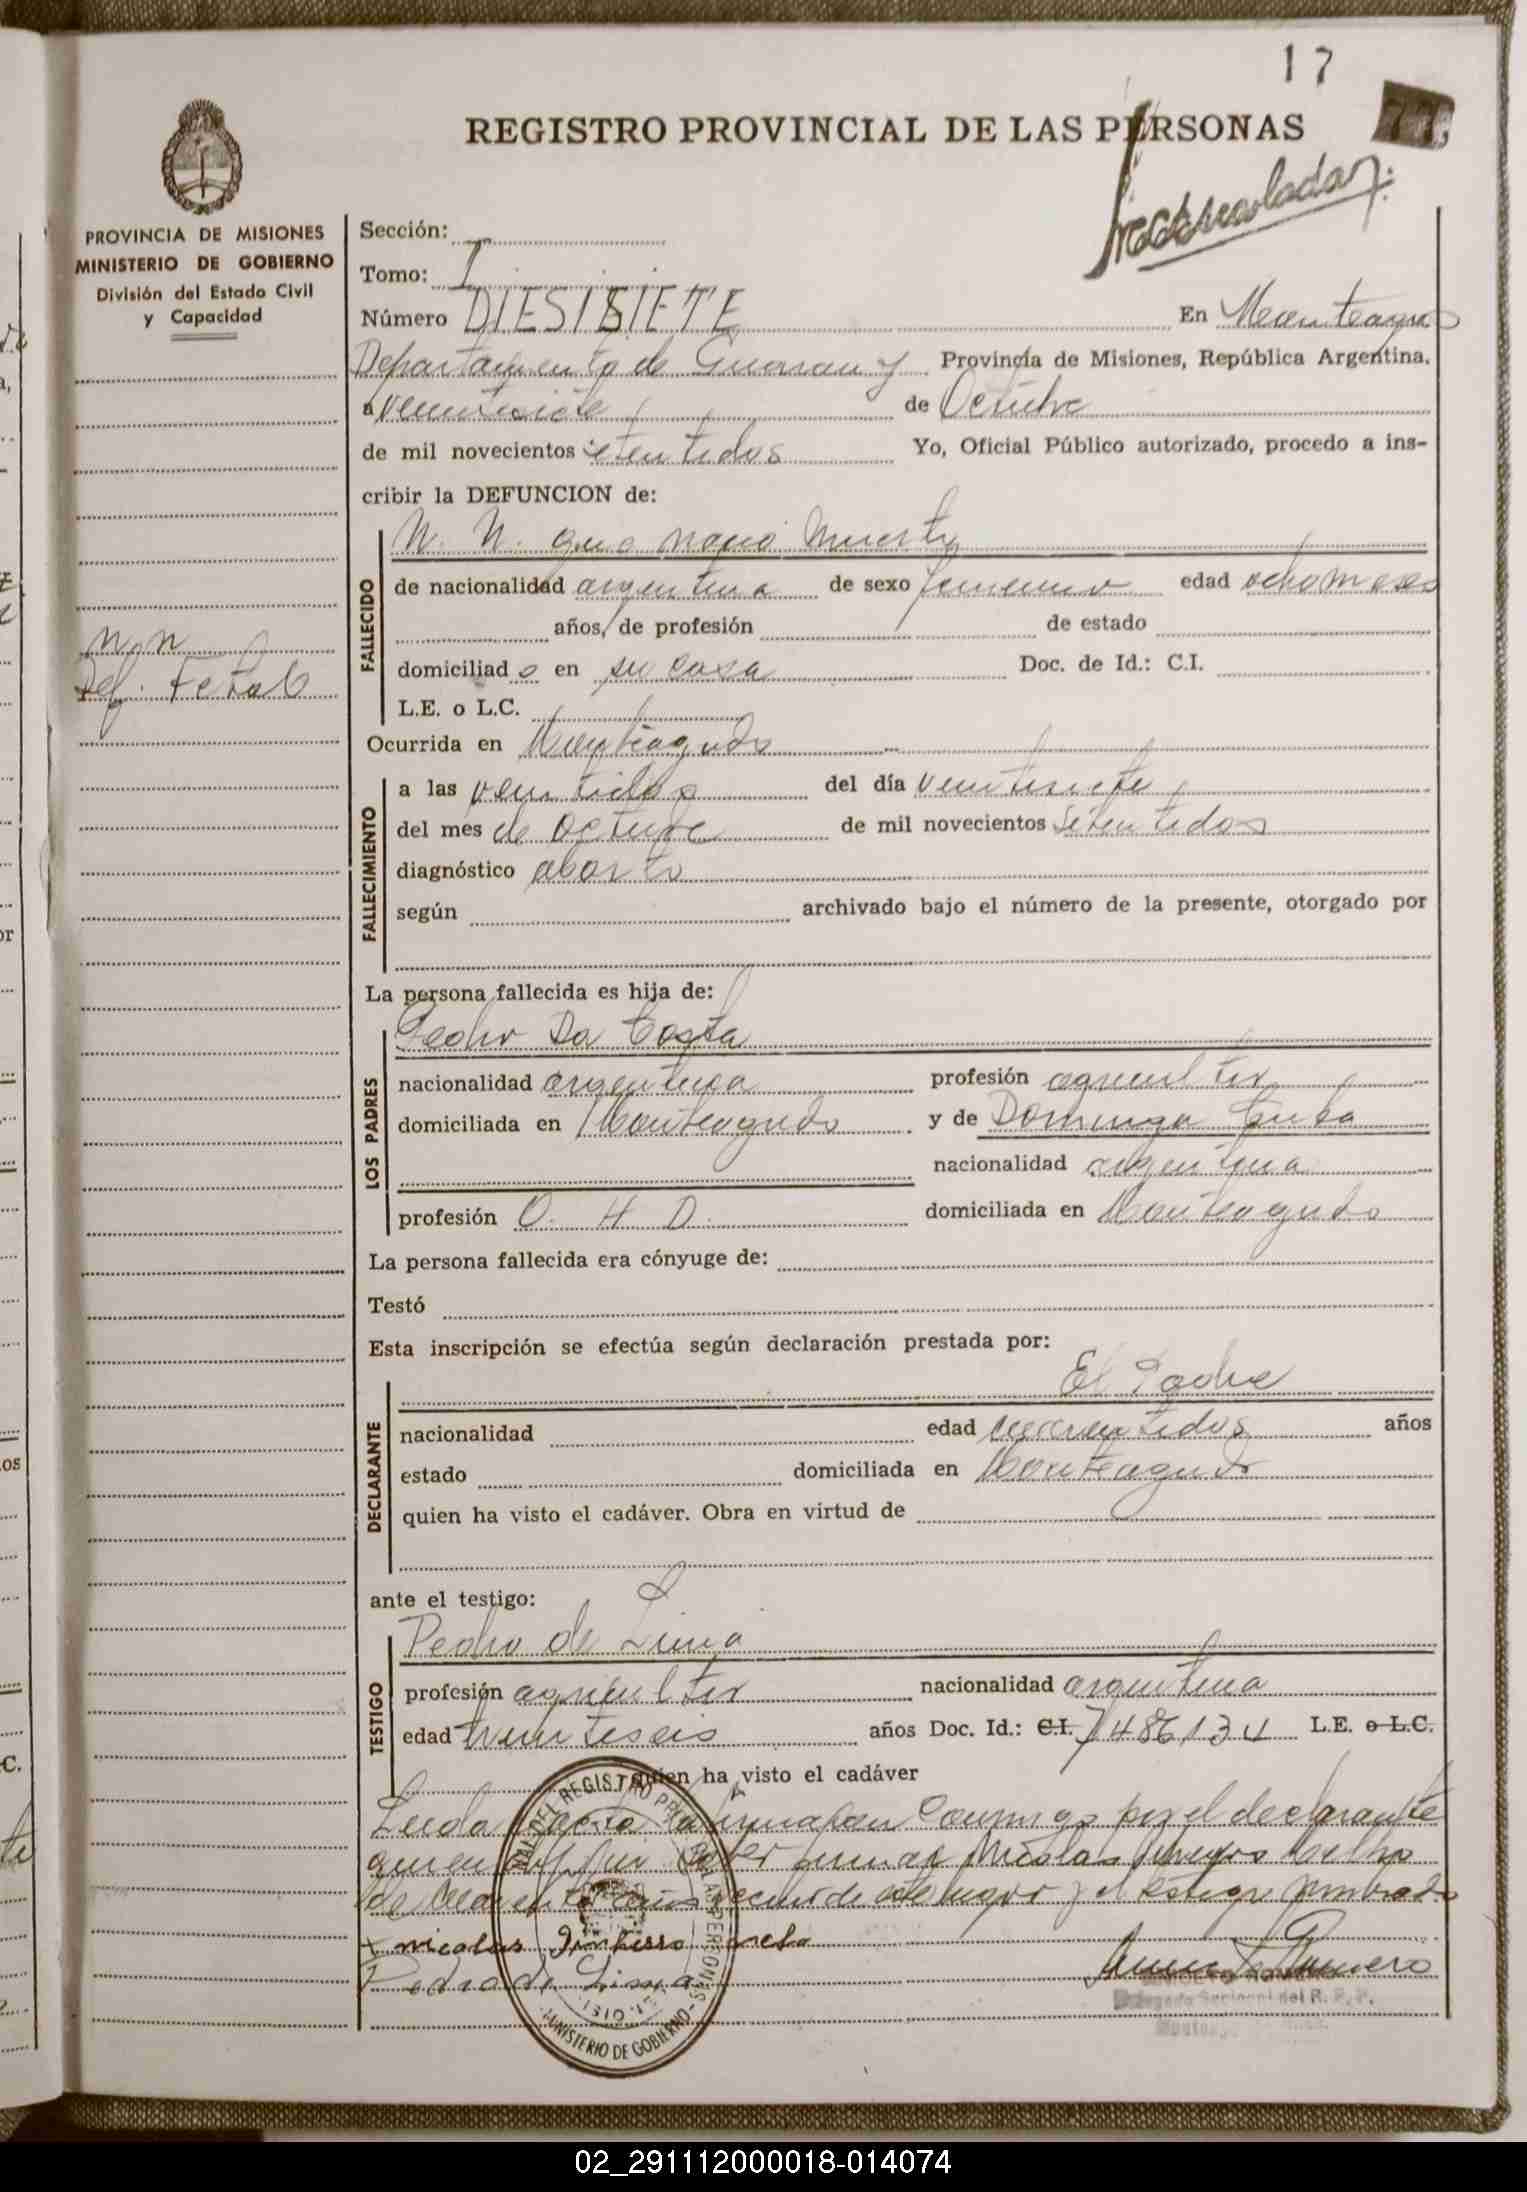 17
77
REGISTRO PROVINCIAL DE LAS PERSONAS
PROVINCIA DE MISIONES
MINISTERIO DE GOBIERNO
División del Estado Civil
y Capacidad
N N
Def. Fetal
Sección:
Tomo: I
Número DIESISIETE En Monteagudo
Departamento de Guarany Provincia de Misiones, República Argentina.
a veintisiete de Octubre
de mil novecientos setentidos Yo, Oficial Público autorizado, procedo a ins-
cribir la DEFUNCION de:
FALLECIDO
N. N. que nacio muerto
de nacionalidad argentina de sexo femenino edad ocho meses
años, de profesión de estado
domiciliad o en su casa Doc. de Id.: C.I.
L.E. o L.C.
Ocurrida en Monteagudo
FALLECIMIENTO
a las veintidos del día veintisiete
del mes de Octubre de mil novecientos setentidos
diagnóstico aborto
según archivado bajo el número de la presente, otorgado por
La persona fallecida es hija de:
LOS PADRES
Pedro Da Costa
nacionalidad argentina profesión agricultor
domiciliada en Monteagudo y de Dominga
nacionalidad argentina
profesión Q. H. D. domiciliada en Monteagudo
La persona fallecida era cónyuge de:
Testó
Esta inscripción se efectúa según declaración prestada por:
DECLARANTE
El Padre
nacionalidad edad cuarentidos años
estado domiciliada en Monteagudo
quien ha visto el cadáver. Obra en virtud de
ante el testigo:
TESTIGO
Pedro de Lima
profesión agricultor nacionalidad argentina
edad treintiseis años Doc. Id.: C.I. 7486134 L.E. o L.C.
quien ha visto el cadáver
Leida acta la firman conmigo por el declarante
quien firmar Nicolas
de cuarenta años vecino de este lugar y el testigo nombrado
x nicolas
Pedro de Lima
Romero
Delegado Seccional del R. P. P.
DEL REGISTRO PROVINCIAL DE LAS PERSONAS
MINISTERIO DE GOBIERNO
02_291112000018-014074